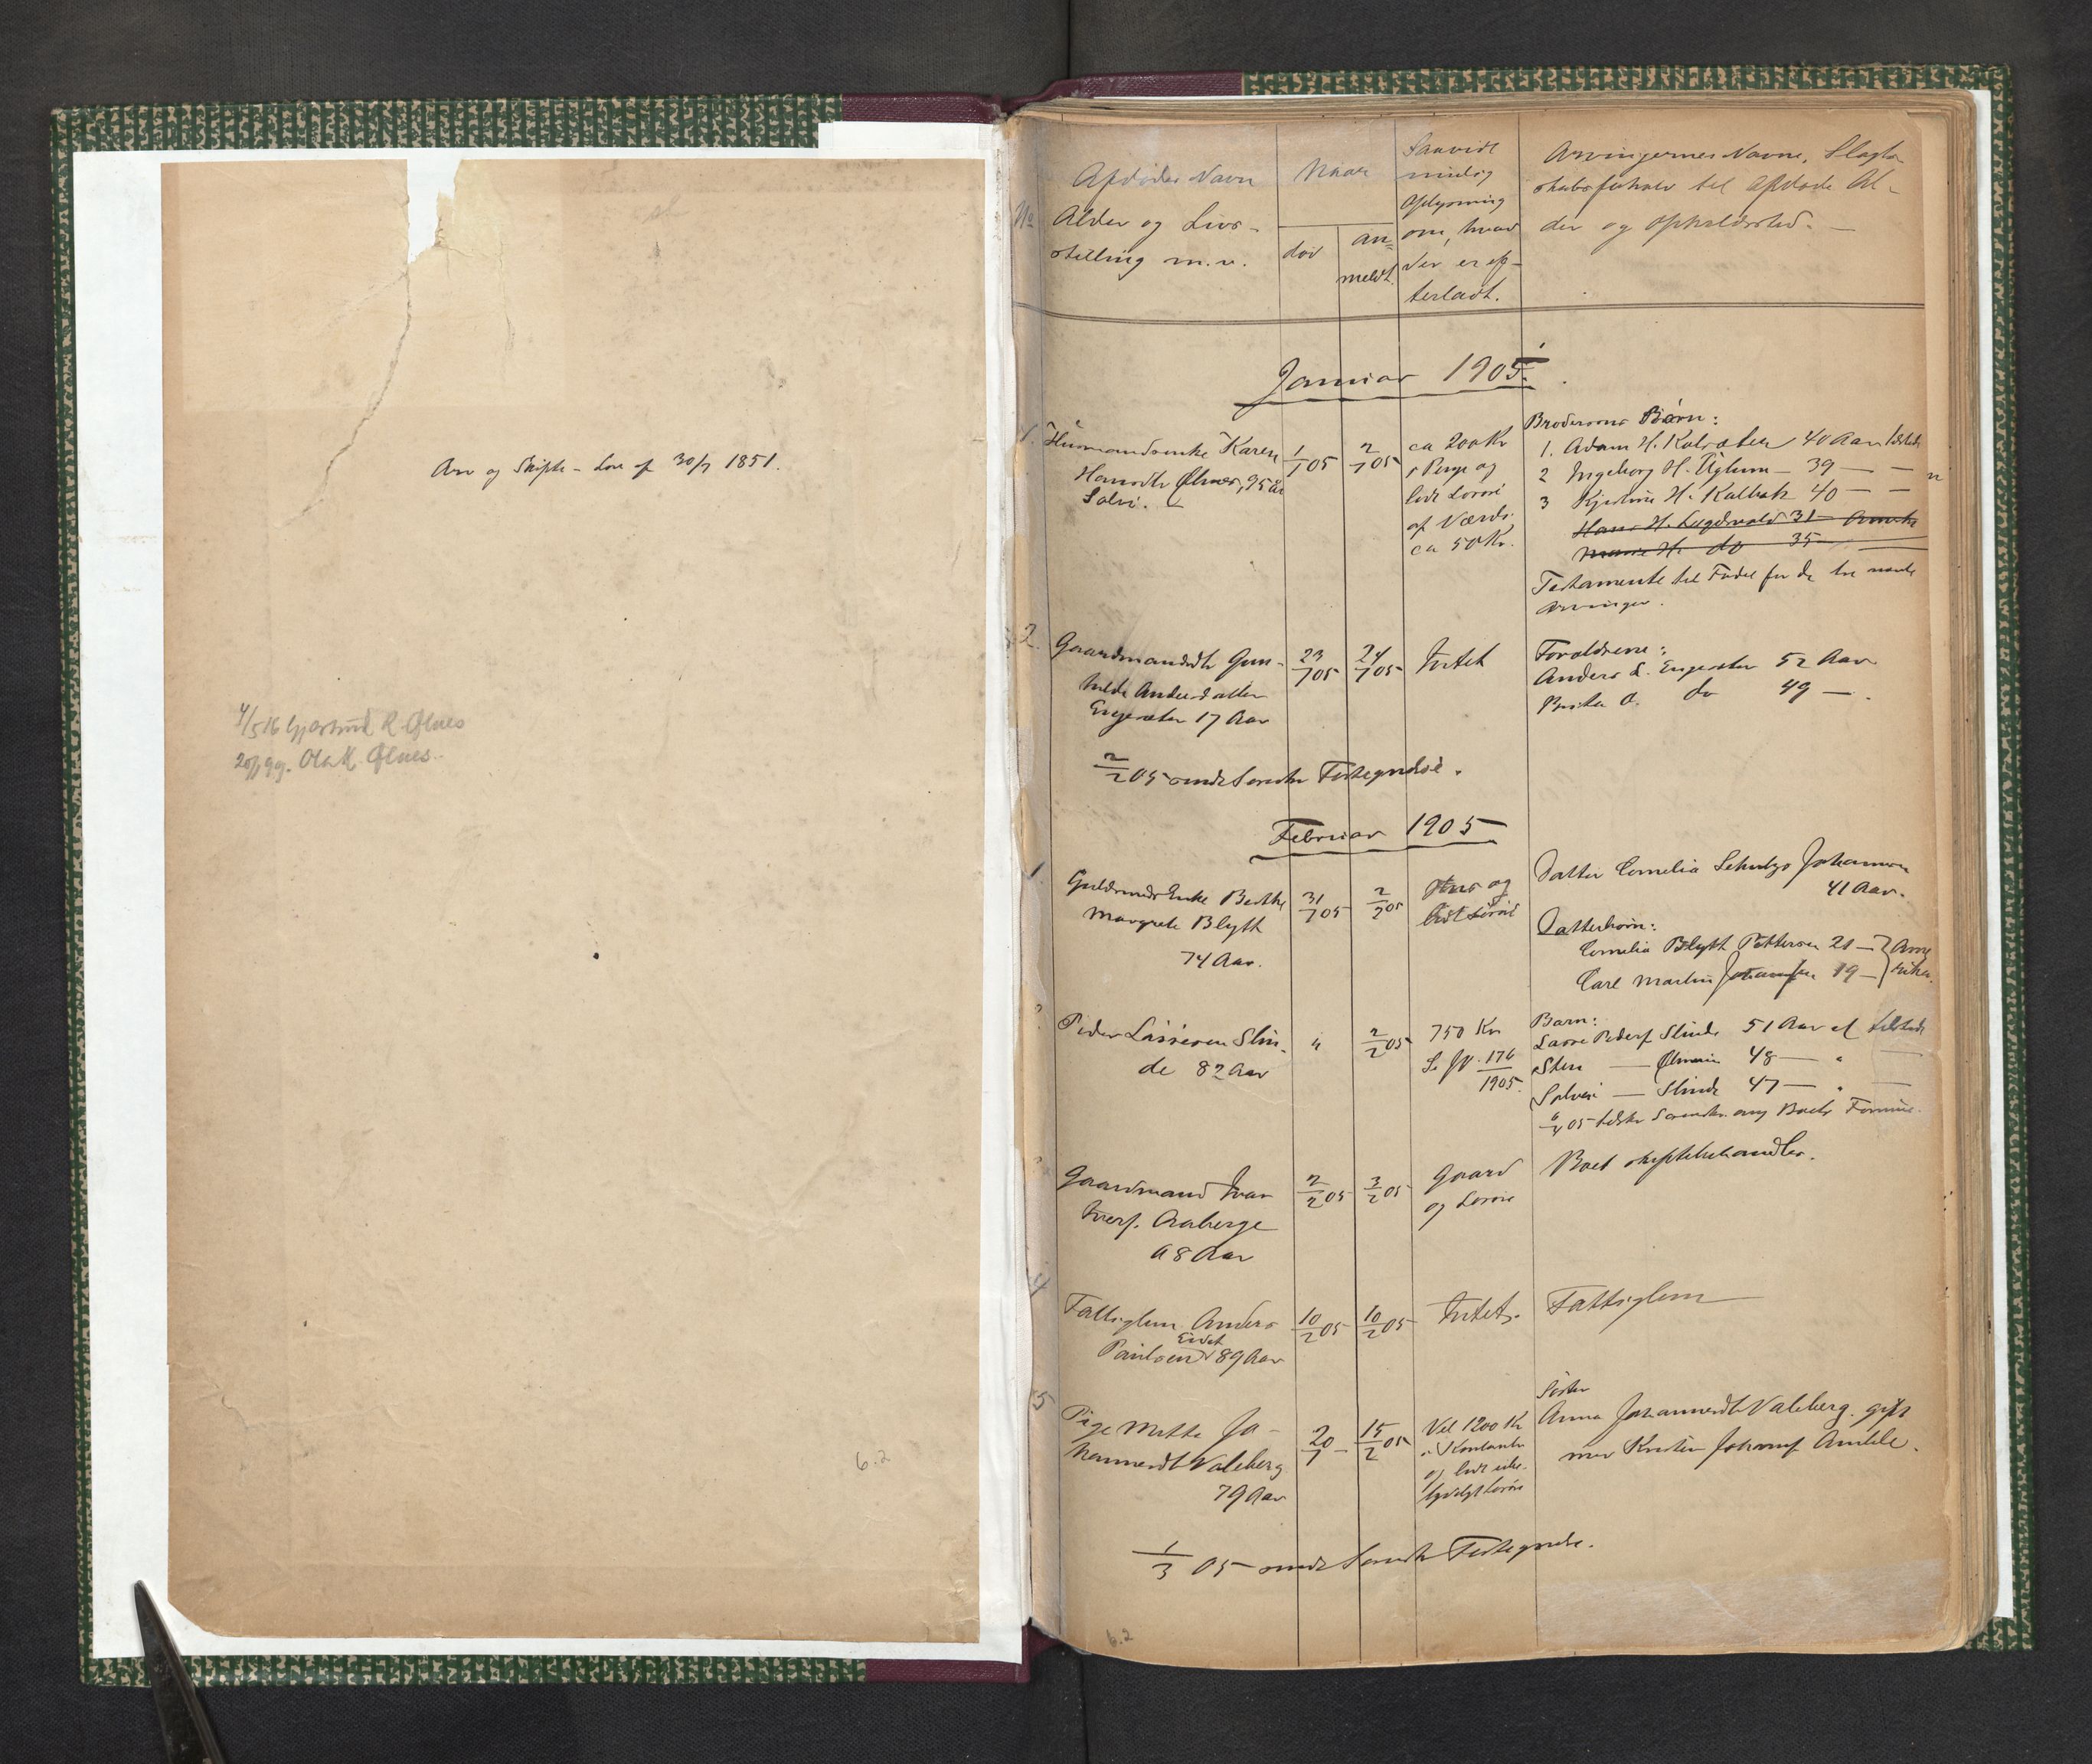 Arv og Skifte-Lov af 30/7 1851.
4/5 16 Gjertrud R. Ølnes
Ola K. Ølnes.
6.2
No
Afdødes Navn
Alder og Livs-
stilling m.v.
Naar
død
an-
meldt.
Saavidt
mulig
Oplysning
om, hvad
der er ef-
terladt.
Arvingernes Navne, Slægt-
skabsforhold til afdøde Al-
der og Opholdssted. —
Januar 1905.
1.
Husmandsenke Karen
Hansdtr Ølnes, 95 år
1/1 05
2/1 05
ca 200 Kr
i Penge og
lidt Løsøre
af Værdi
ca 50 Kr.
Broderens Børn:
1. Adam H. Kalvesæter 40 Aar
2 Ingeborg H. Uglum — 39 — —
3 H. 40 — —
Hans H. 31 —
H. do 35 —
Testamente til Fordel for de tre nævnte
Arvinger.
2.
Gaardmandsdtr Gun-
hilde Andersdatter
Engesæter 17 Aar
23/1 05
24/1 05
Intet
Forældrene:
Anders L. Engesæter 52 Aar
Brita O. do 49 —.
2/2 05 sendt Sorenskr. Fortegnelse.
Februar 1905
1.
Guldsmeds Enke Berthe
Margrete Blytt
74 Aar.
31/1 05
2/2 05
Hus og
lidt Løsøre
Datter Cornelia Johannesen
41 Aar.
Datterbørn:
Cornelia Blytt Pettersen 21 —
Carl Martin Johansen 19 —
Ame
rika.
2
Peder Lasseson Slin-
de 82 Aar
"
2/2 05
750 Kr
176
1905.
Barn:
Lasse Peders. Slinde 51 Aar
Sten — 48 — "
Solvei — Slinde 47 — "
3
Gaardmand Ivar
Ivers. Aaberge
68 Aar
2/2 05
3/2 05
Gaard
og Løsøre
Boet skiftebehandles.
4
Fattiglem Anders
Eidet
Paulsen 89 Aar
10/2 05
10/2 05
Intet.
Fattiglem
5
Pige Mette Jo-
hannesdtr Valeberg
79 Aar
20/1 —
15/2 05
Vel 1200 Kr
i Kontanter
og lidt ube-
tydeligt Løsøre
Søster
Anna Johannesdtr Valeberg, gift
med Kristen Johannes. Amble.
1/3 05 sendt Sorenskr Fortegnelse.
6.2